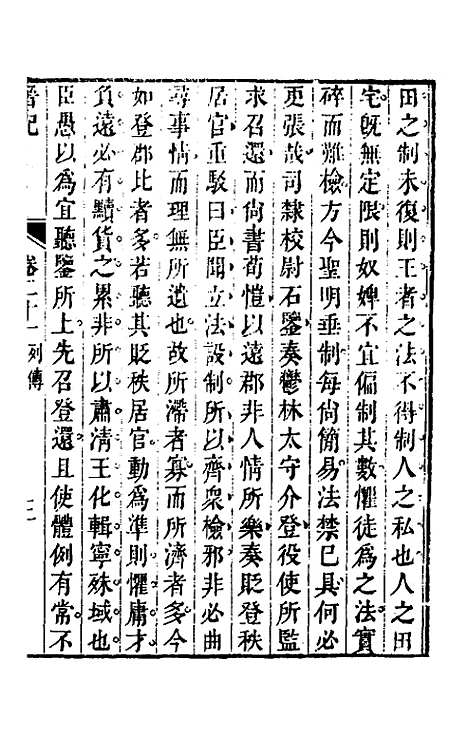 田之制未復則王者之法不得制人之私也人之田
宅旣無定限則奴婢不宜偏制其數懼徒爲之法實
碎而難檢方今聖明垂制每尙簡易法禁已具何必
更張哉司隸校尉石鑒奏鬱林太守介登役使所監
求召還而尙書荀愷以遠郡非人情所樂奏貶登秩
居官重駁曰臣聞立法設制所以齊衆檢邪非必曲
尋事情而理無所遺也故所滯者寡而所濟者多今
如登郡比者多若聽其貶秩居官動爲準則懼庸才
負遠必有黷貨之累非所以肅淸王化輯寧殊域也
臣愚以爲宜聽鑒所上先召登還且使體例有常不
晉記
卷二十一
列傳